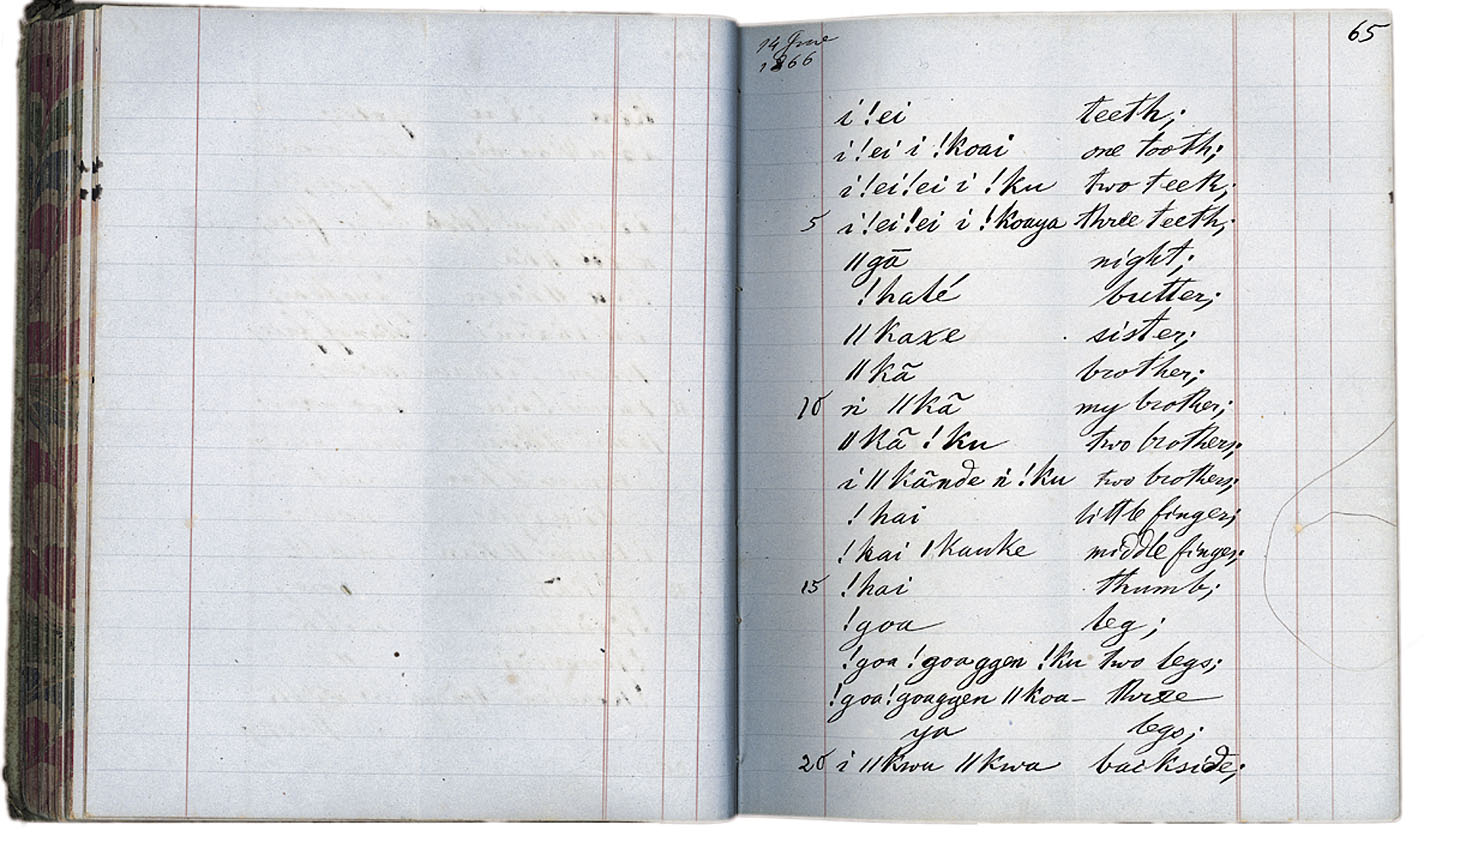 14 June
1866
65
i !ei teeth;
i !ei i !koai one tooth;
i !ei!ei i !ku two teeth;
5 i !ei!ei i !koaya three teeth;
ǁgā night;
!haté butter;
ǁkaxe sister;
ǁkã brother;
10 ṅ ǁkã my brother;
ǁkã !ku two brothers;
i ǁkãnde ṅ !ku two brothers;
!hai little finger;
!kai ǀkauke middle finger;
15 !hai thumb;
!goa leg;
!goa !goaggen !ku two legs;
!goa!goaggen ǁkoa- three
ya legs;
20 i ǁkwa ǁkwa backside;